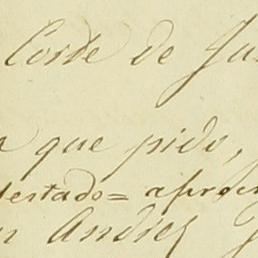 Corte de Jus
a que pido,
testado= aproce
n Andres